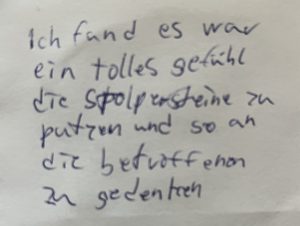 Ich fand es war
ein tolles gefühl
die Stolpersteine zu
putzen und so an
die betroffenen
zu gedenken